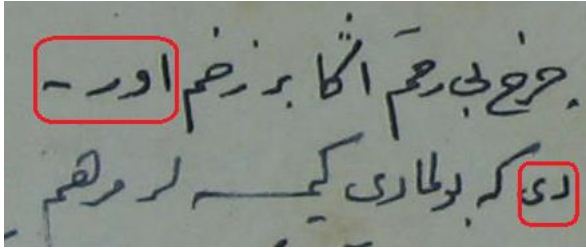 چرخ بی رحم اڭا بر زخم اور -
دی که بولمادی کیمسه لر مرهم